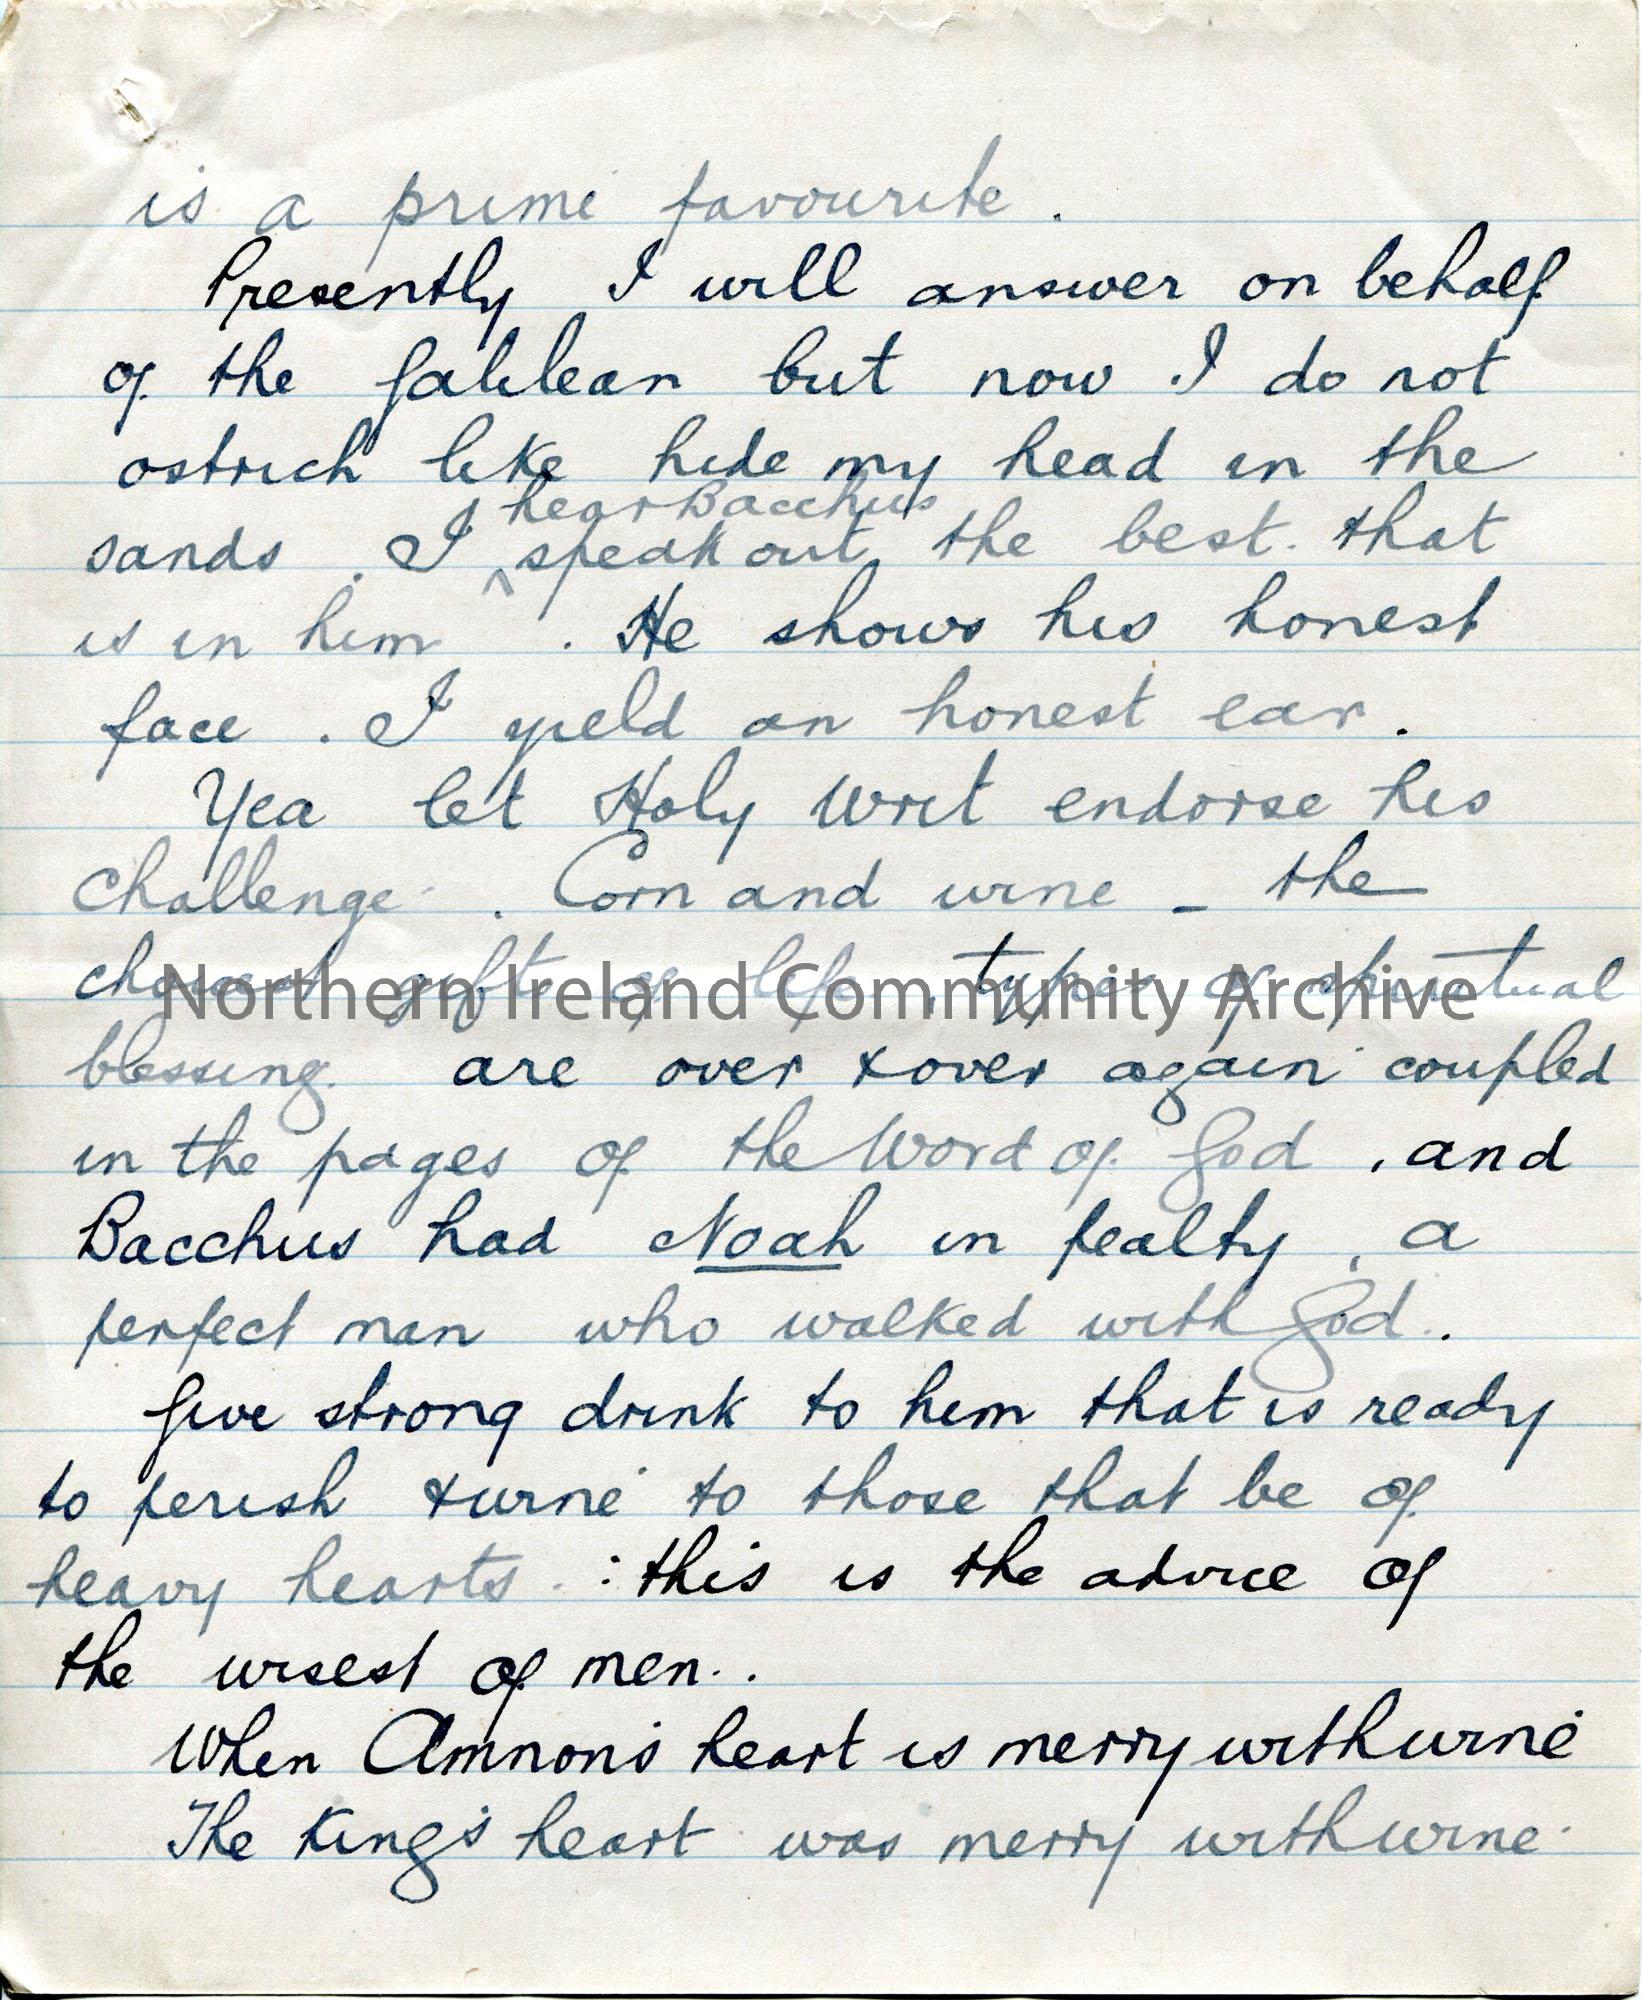 is a prime favourite.
Presently I will answer on behalf
of the Galilean but now I do not
ostrich like hide my head in the
hear Bacchus
sands. I ^ speak out the best that
is in him. He shows his honest
face. I yield an honest ear.
Yea let Holy Writ endorse his
challenge. Corn and wine - the
gifts of life, types of spiritual
Northern Ireland Community Archive
blessing are over & over again coupled
in the pages of the Word of God, and
Bacchus had Noah in fealty, a
perfect man who walked with God.
Give strong drink to him that is ready
to perish & wine to those that be of
heavy hearts: this is the advice of
the wisest of men.
When Amnon's heart is merry with wine
The King's heart was merry with wine